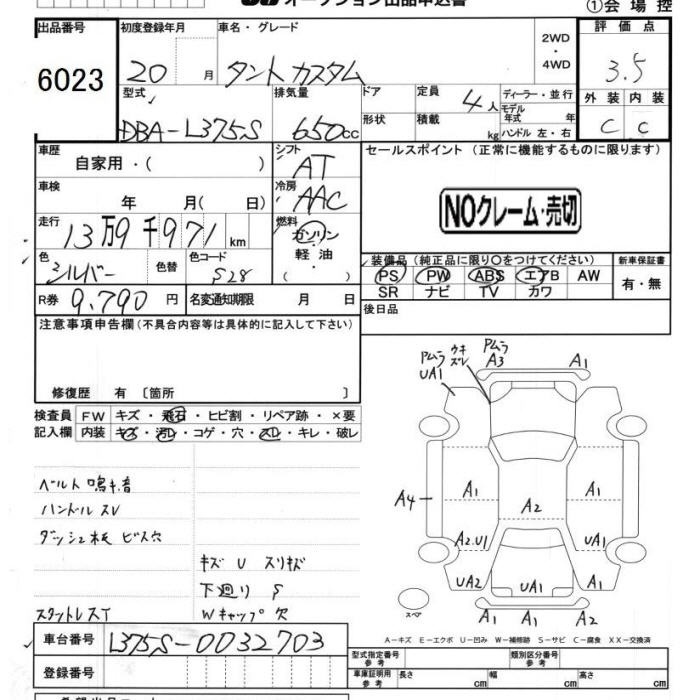 オークション出品申込書
①会場控
出品番号
6023
初度登録年月
20 月
車名・グレード
タント カスタム
2WD
・
4WD
評価点
3.5
外装 内装
C C
型式
DBA-L375S
排気量
650cc
ドア
形状
定員
4人
積載
kg
ディーラー・並行
モデル
年式 年
ハンドル 左・右
車歴
自家用・( )
シフト
AT
セールスポイント (正常に機能するものに限ります)
NOクレーム・売切
車検
年 月( 日)
冷房
AAC
走行
13万9千971km
燃料
ガソリン
・
軽油
・
( )
色
シルバー
色替
色コード
S28
装備品 (純正品に限り○をつけてください)
PS PW ABS エアB AW
SR ナビ TV カワ
新車保証書
有・無
R券 9,790円
名変通知期限 月 日
後日品
注意事項申告欄(不具合内容等は具体的に記入して下さい)
修復歴 有〔箇所 〕
検査員
記入欄
FW キズ・飛石・ヒビ割・リペア跡・×要
内装 キズ・汚れ・コゲ・穴・スレ・キレ・破レ
ベルト鳴キ音
ハンドルスレ
ダッシュ板 ビス穴
キズ U スリキズ
下廻り S
スタットレスT
Wキャップ欠
PムラUA1
ウキズレ
PムラA3
A1
A4
A1
A2
A1
A2.U1
UA1
UA2
UA1
A1
A1
A1
A2
スペア
A-キズ E-エクボ U-凹み W-補修跡 S-サビ C-腐食 XX-交換済
車台番号
L375S-0032703
登録番号
型式指定番号
参考
類別区分番号
参考
車庫証明用
参考
長さ cm
幅 cm
高さ cm